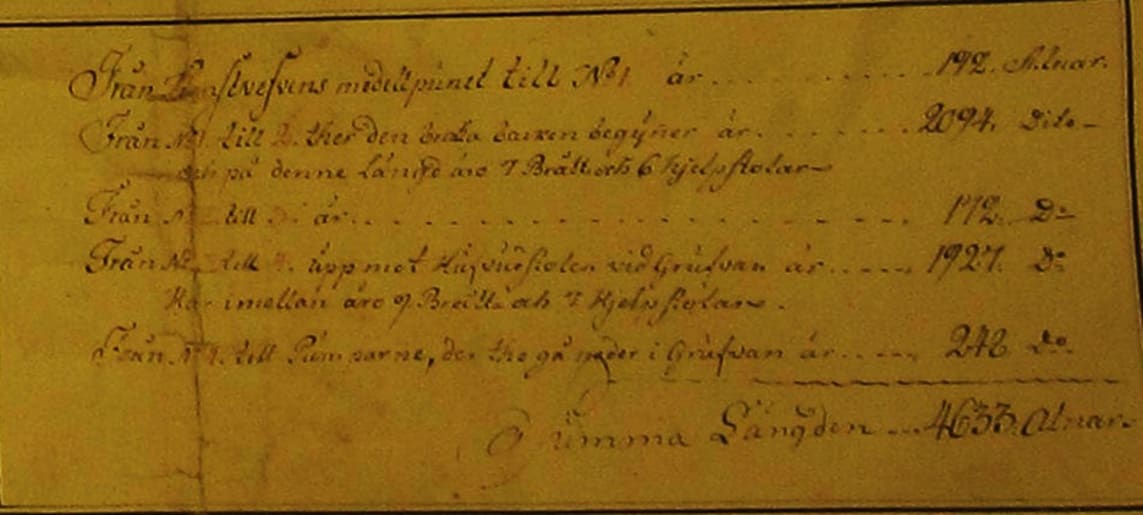 Från Konstvefvens medellpunct till N:o 1 är . . . . . . . . . . . 192. Alnar.
Från N:o 1. till 2. ther den bratta backen begyñer är. . . . . . . 2094. Dito
och på denne Längd äro 7 Brått. och 6 Hjelpstolar
Från N:o 2 till 3 är. . . . . . . . . . . . . . . . . . . 172. D:o
Från N:o 3 till 4. upp mot Hufvudstolen vid Grufvan är . . . . 1927. D:o
Här imellan äro 9. Brått. och 7 Hjelpstolar.
Från N:o 4. till Pumparne, der the gå neder i Grufvan är . . . . 248 D:o
Summa Längden . . . 4633. Alnar.